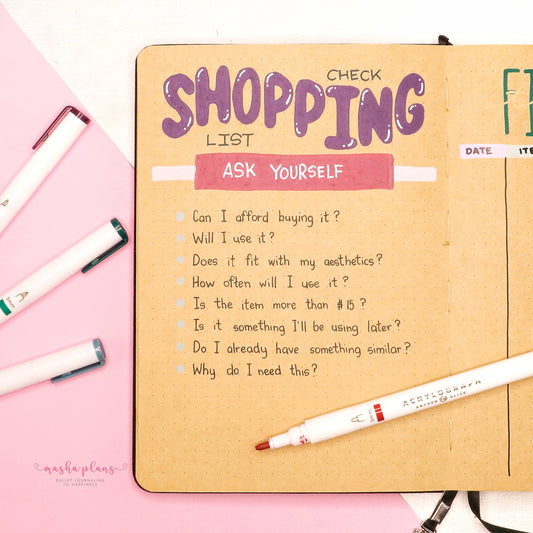 CHECK
SHOPPING
LIST
ASK YOURSELF
Can I afford buying it?
Will I use it?
Does it fit with my aesthetics?
How often will I use it?
Is the item more than $15?
Is it something I'll be using later?
Do I already have something similar?
Why do I need this?
FI
DATE ITE
ACRYLOGRAPH
ARCHER & OLIVE
masha plans
BULLET JOURNALING
TO HAPPINESS